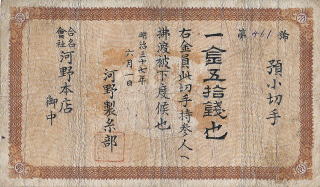 第461號
預小切手
一金五拾錢也
右金員此切手持參人へ
拂渡被下度候也
明治三十七年
六月一日
河野製糸部
合名會社 河野本店
御中